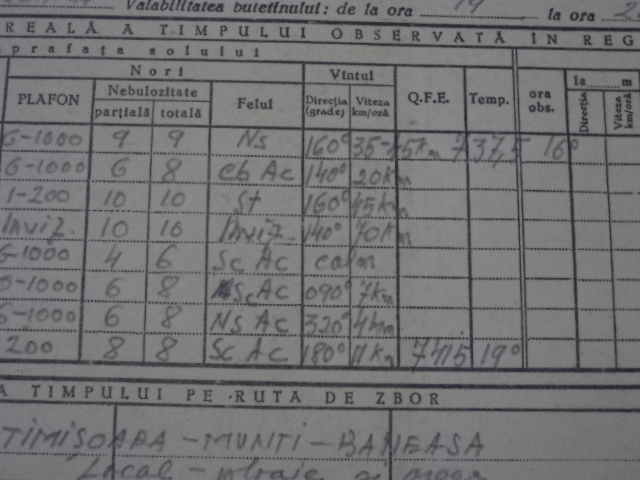 Valabilitatea buletinului: de la ora 19 la ora 2
REALĂ A TIMPULUI OBSERVATĂ ÎN REG
prafața solului
Nori Vîntul la m
PLAFON Nebulozitate Felul Q.F.E. Temp. ora obs.
parțială totală Direcția (grade) Viteza km/oră Direcția Viteza km/oră
6-1000 9 9 Ns 160° 35-45km 737,5 16°
6-1000 6 8 Cb Ac 140° 20km
1-200 10 10 St 160° 45km
Inviz. 10 10 Inviz. 140° 70km
6-1000 4 6 Sc Ac calm
6-1000 6 8 Sc Ac 090° 7km
6-1000 6 8 Ns Ac 320° 4km
200 8 8 Sc Ac 180° 11km 741,5 19°
A TIMPULUI PE RUTA DE ZBOR
TIMIȘOARA - MUNTI - BANEASA
Local - ploaie